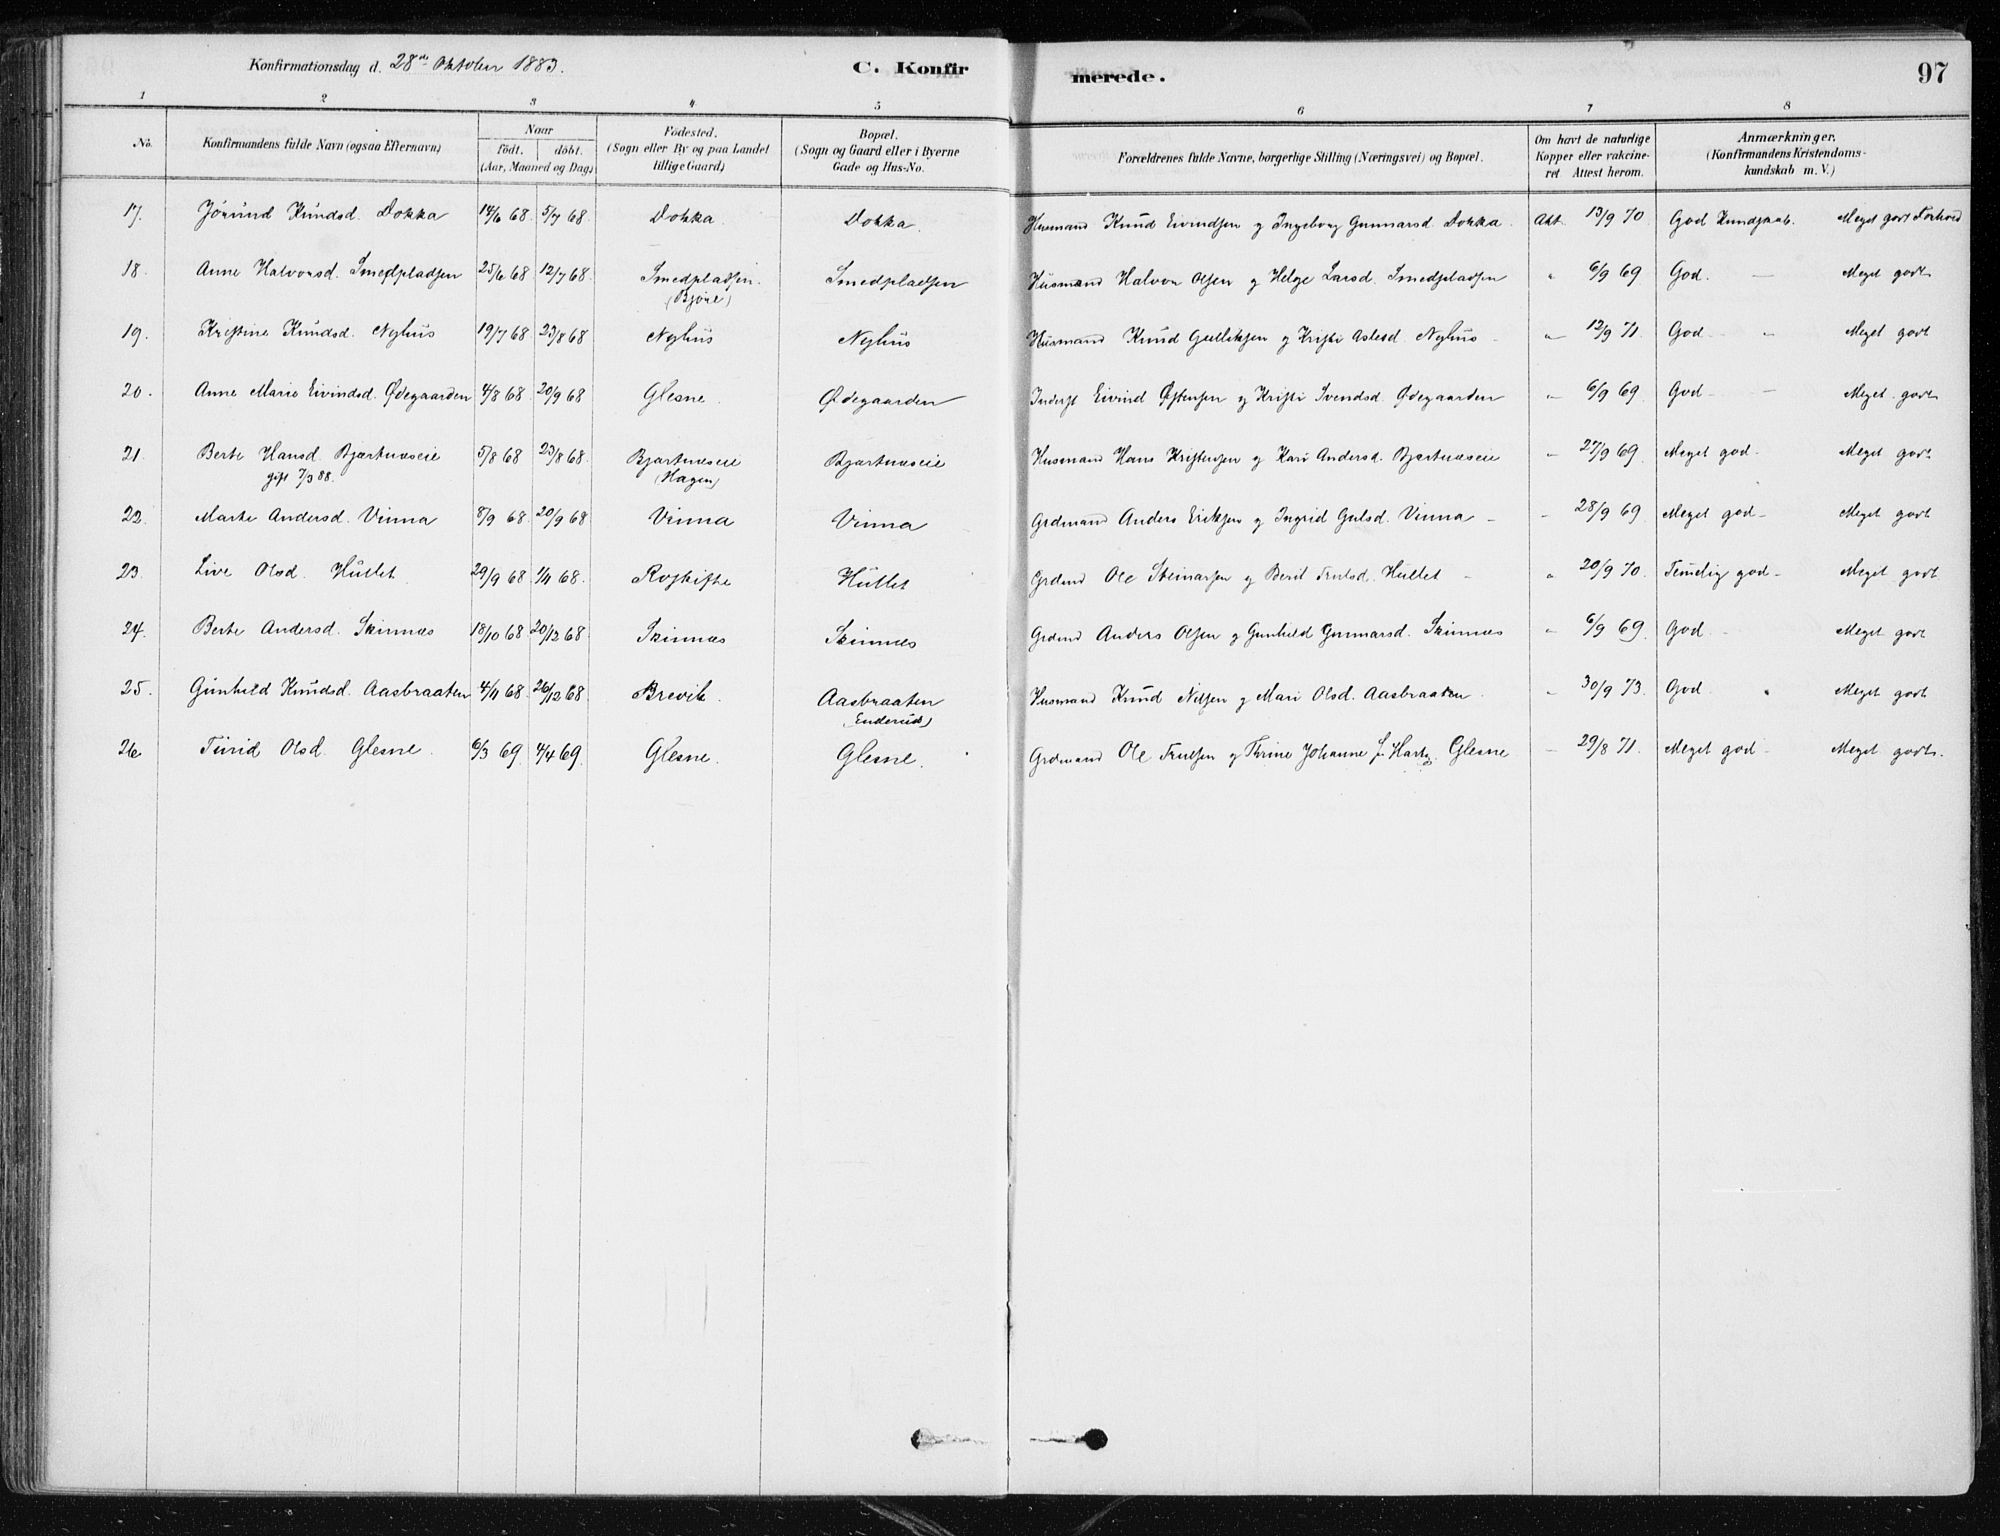 Konfirmationsdag d. 28de Oktober 1883. C. Konfir merede. 97
1 2 3 4 5 6 7 8
No. Konfirmandens fulde Navn (ogsaa Efternavn) Naar födt. döbt. (Aar, Maaned og Dag) Födested. (Sogn eller By og paa Landet tillige Gaard) Bopæl. (Sogn og Gaard eller i Byerne Gade og Hus-No. Forældrenes fulde Navne, borgerlige Stilling (Næringsvei) og Bopæl. Om havt de naturlige Kopper eller vakcineret Attest herom. Anmærkninger. (Konfirmandens Kristendomskundskab m. V.)
17. Jørund Knudsd. Dokka 14/6 68 5/7 68. Dokka. Dokka. Husmand Knud Eivindsen og Ingeborg Gunnarsd. Dokka. Att. 13/9 70 God Kundskab. Meget godt Forhold
18. Anne Halvorsd. Smedpladsen 25/6 68 12/7 68. Smedpladsen. Smedpladsen Husmand Halvor Olsen og Helge Larsd. Smedpladsen " 6/9 69 God. — Meget godt
(Bjøre)
19. Kristine Knudsd. Nyhus 19/7 68 23/8 68 Nyhus Nyhus Husmand Knud Gulliksen og Kristi Aslesd. Nyhus - " 12/9 71. God - " Meget godt
20. Anne Marie Eivindsd. Ødegaarden 4/8 68 20/9 68 Glesne. Ødegaarden Inderst Eivind Østensen og Kristi Svendsd. Ødegaarden " 6/9 69. God - — Meget godt
21. Berte Hansd. Bjertnæseie 5/8 68 23/8 68 Bjertnæseie Bjertnæseie Husmand Hans Kristensen og Kari Andersd. Bjertnæseie " 27/9 69. Meget god - Meget godt
gift 7/3 88. (Hagen)
22. Marte Andersd. Vinna 8/9 68 20/9 68 Vinna Vinna Grdmand Anders Eriksen og Ingrid Gulsd. Vinna - " 28/9 69. Meget god - Meget godt
23. Live Olsd. Hullet 29/9 68 1/11 68. Hullet Grdmd Ole Steinarsen og Berit Trulsd. Hullet - " 20/9 70. Temelig god - Meget godt
24. Berte Andersd. Skinnes 18/10 68 20/12 68 Skinnes Skinnes Grdmd Anders Olsen og Gunhild Gunnarsd. Skinnes " 6/9 69. God - Meget godt
25. Gunhild Knudsd. Aasbraaten 4/11 68 26/12 68 Brevik. Aasbraaten Husmand Knud Nilsen og Mari Olsd. Aasbraaten. " 30/9 73. God. " Meget godt
(Enderud)
26 Turid Olsd. Glesne. 6/3 69 4/4 69. Glesne. Glesne. Grdmand Ole Trulsen og Thrine Johanne f. Hartz. Glesne — 29/8 71. Meget god - Meget godt.